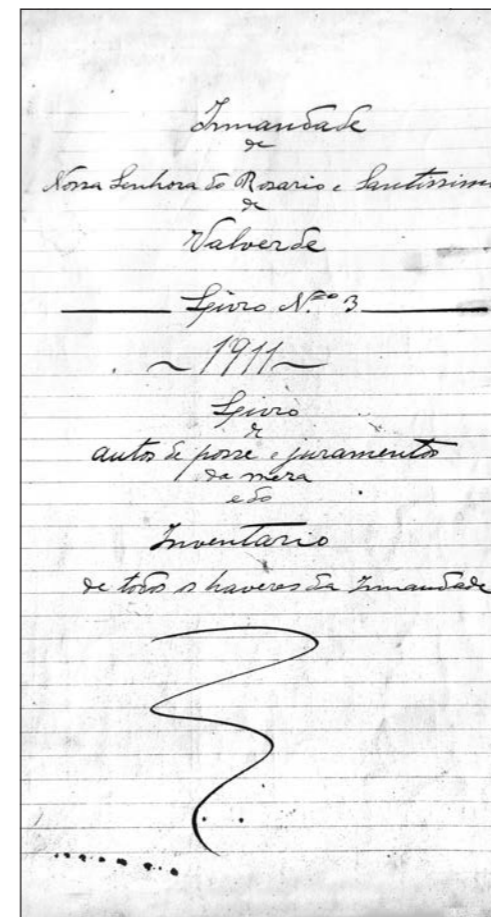 Irmandade
de
Nossa Senhora do Rosario e Santissimo
de
Valverde
Livro N.º 3
~ 1911 ~
Livro
de
autos de posse e juramentos
da meza
e do
Inventario
de todos os haveres da Irmandade